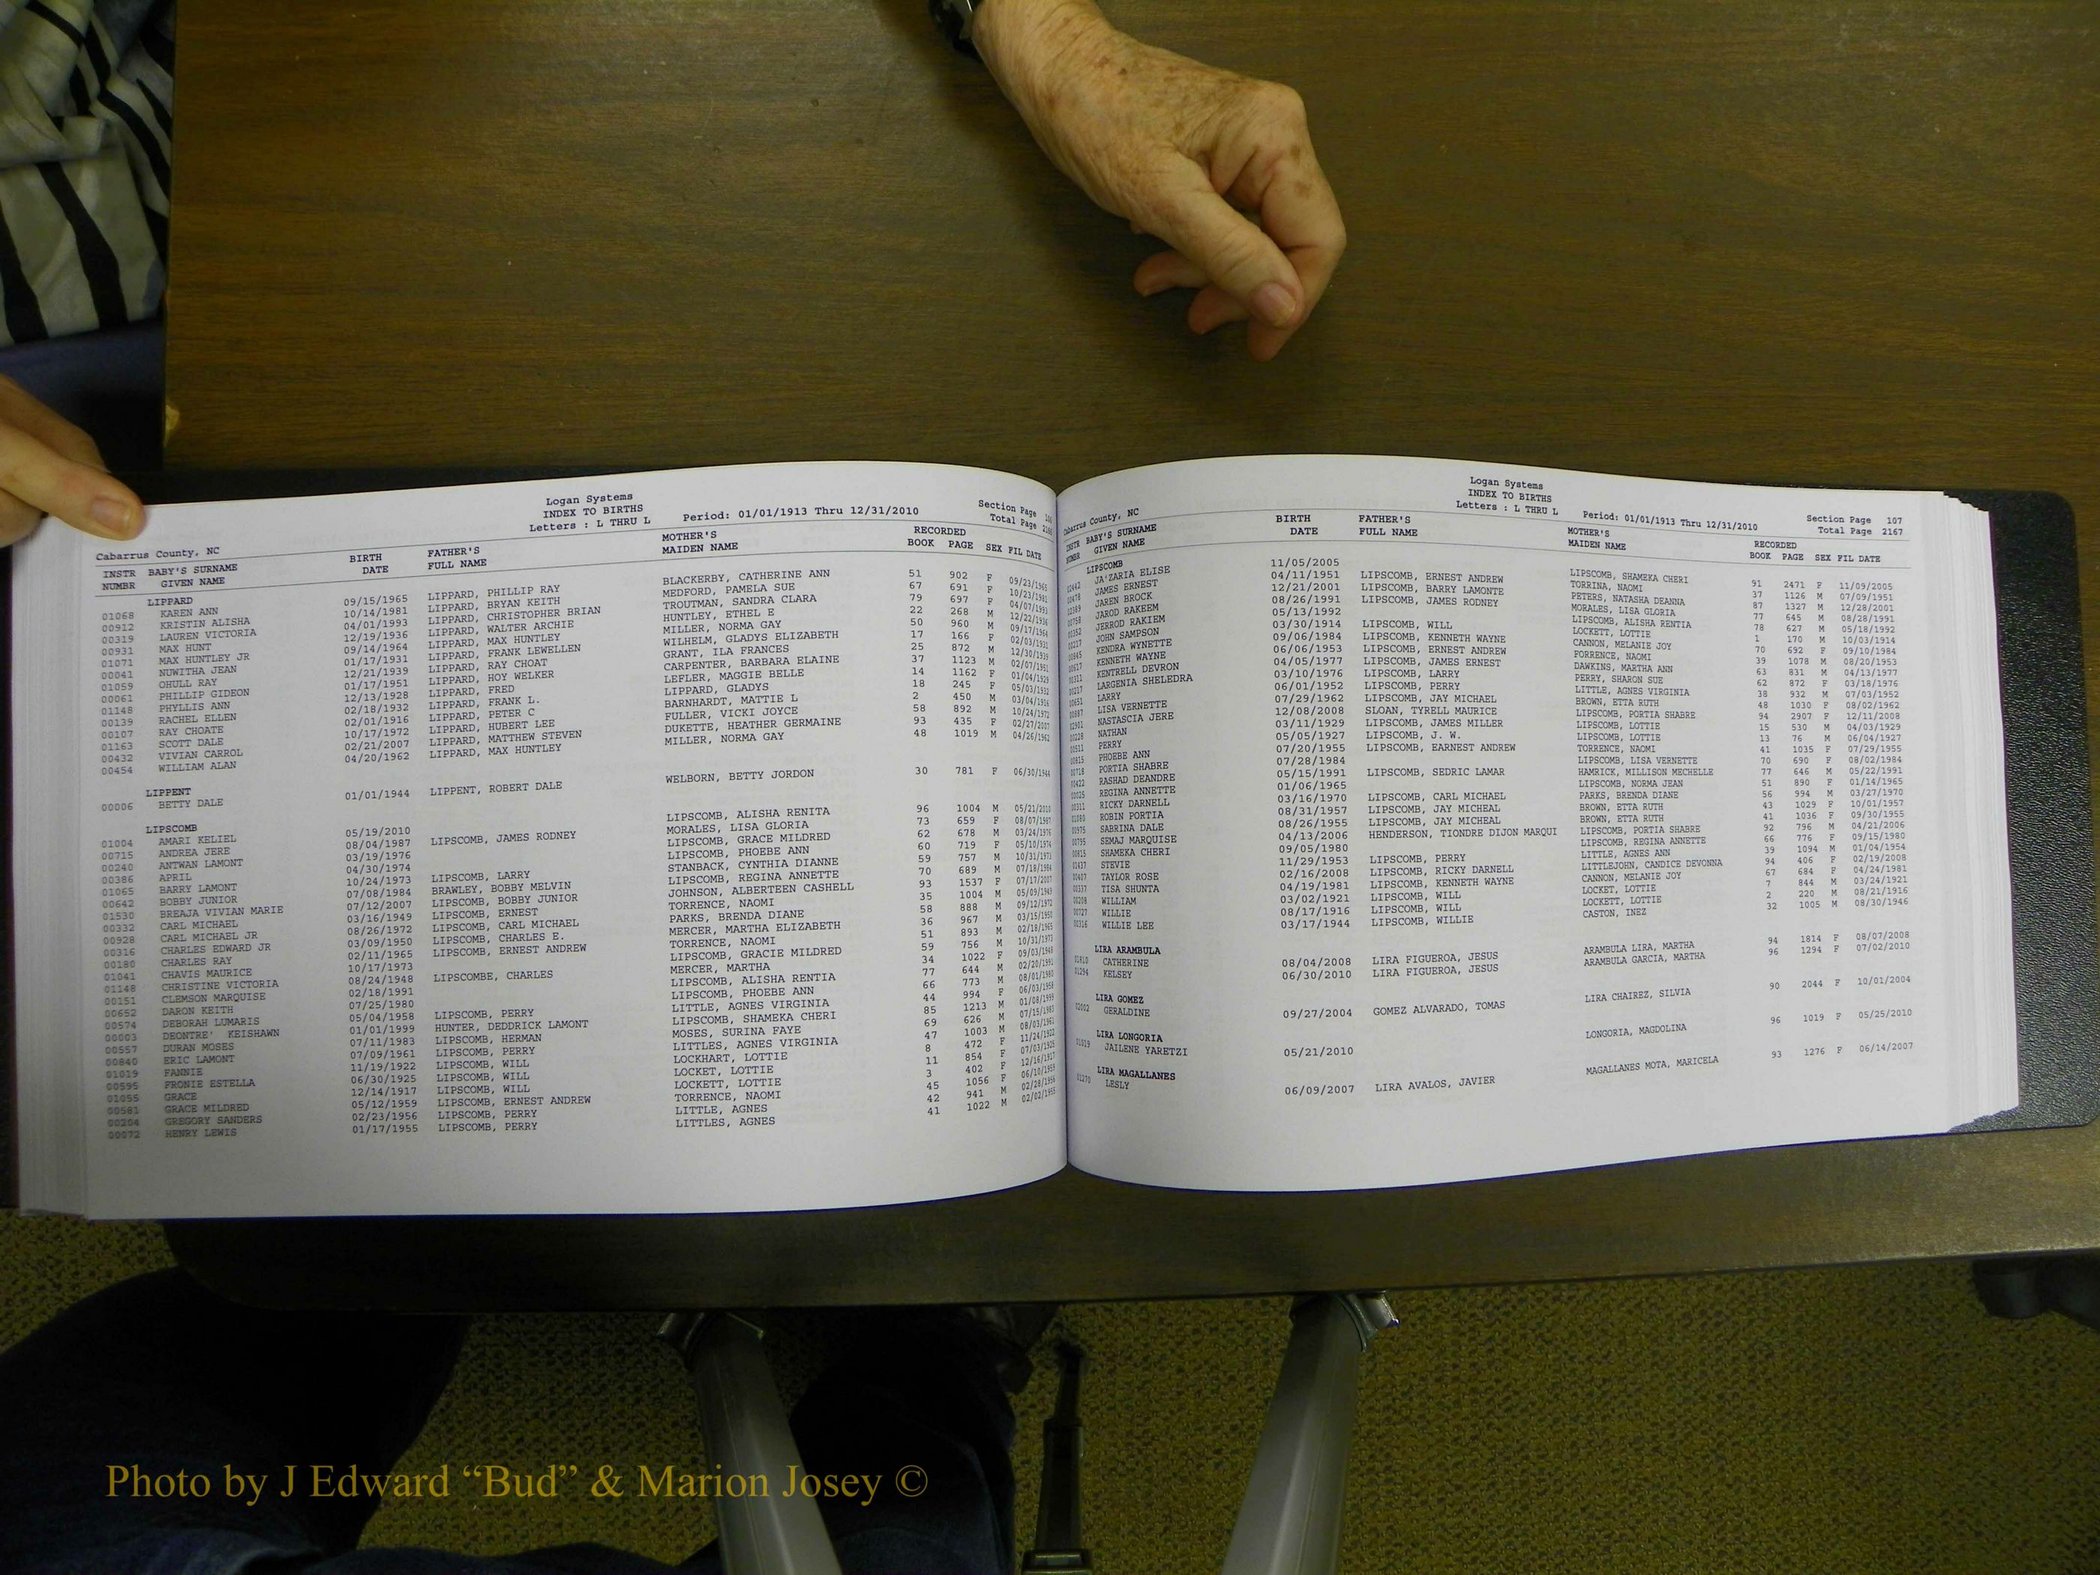 Logan Systems
INDEX TO BIRTHS
Letters : L THRU L Period: 01/01/1913 Thru 12/31/2010
Section Page
Total Page
Cabarrus County, NC
INSTR BABY'S SURNAME BIRTH FATHER'S MOTHER'S RECORDED
NUMBR GIVEN NAME DATE FULL NAME MAIDEN NAME BOOK PAGE SEX FIL DATE
LIPPARD
01068 KAREN ANN 09/15/1965 LIPPARD, PHILLIP RAY BLACKERBY, CATHERINE ANN 51 902 F 09/23/1965
00912 KRISTIN ALISHA 10/14/1981 LIPPARD, BRYAN KEITH MEDFORD, PAMELA SUE 67 691 F 10/23/1981
00319 LAUREN VICTORIA 04/01/1993 LIPPARD, CHRISTOPHER BRIAN TROUTMAN, SANDRA CLARA 79 697 F 04/07/1993
00931 MAX HUNT 12/19/1936 LIPPARD, WALTER ARCHIE HUNTLEY, ETHEL E 22 268 M 12/22/1936
01071 MAX HUNTLEY JR 09/14/1964 LIPPARD, MAX HUNTLEY MILLER, NORMA GAY 50 960 M 09/17/1964
00041 NUWITHA JEAN 01/17/1931 LIPPARD, FRANK LEWELLEN WILHELM, GLADYS ELIZABETH 17 166 F 02/03/1931
01059 OHULL RAY 12/21/1939 LIPPARD, RAY CHOAT GRANT, ILA FRANCES 25 872 M 12/30/1939
00061 PHILLIP GIDEON 01/17/1951 LIPPARD, HOY WELKER CARPENTER, BARBARA ELAINE 37 1123 M 02/07/1951
01148 PHYLLIS ANN 12/13/1928 LIPPARD, FRED LEFLER, MAGGIE BELLE 14 1162 F 01/04/1929
00139 RACHEL ELLEN 02/18/1932 LIPPARD, FRANK L. LIPPARD, GLADYS 18 245 F 05/03/1932
00107 RAY CHOATE 02/01/1916 LIPPARD, PETER C BARNHARDT, MATTIE L 2 450 M 03/04/1916
01163 SCOTT DALE 10/17/1972 LIPPARD, HUBERT LEE FULLER, VICKI JOYCE 58 892 M 10/24/1972
00432 VIVIAN CARROL 02/21/2007 LIPPARD, MATTHEW STEVEN DUKETTE, HEATHER GERMAINE 93 435 F 02/27/2007
00454 WILLIAM ALAN 04/20/1962 LIPPARD, MAX HUNTLEY MILLER, NORMA GAY 48 1019 M 04/26/1962
LIPPENT
00006 BETTY DALE 01/01/1944 LIPPENT, ROBERT DALE WELBORN, BETTY JORDON 30 781 F 06/30/1944
LIPSCOMB
01004 AMARI KELIEL 05/19/2010 LIPSCOMB, ALISHA RENITA 96 1004 M 05/21/2010
00715 ANDREA JERE 08/04/1987 LIPSCOMB, JAMES RODNEY MORALES, LISA GLORIA 73 659 F 08/07/1987
00240 ANTWAN LAMONT 03/19/1976 LIPSCOMB, GRACE MILDRED 62 678 M 03/24/1976
00386 APRIL 04/30/1974 LIPSCOMB, PHOEBE ANN 60 719 F 05/10/1974
01065 BARRY LAMONT 10/24/1973 LIPSCOMB, LARRY STANBACK, CYNTHIA DIANNE 59 757 M 10/31/1973
00642 BOBBY JUNIOR 07/08/1984 BRAWLEY, BOBBY MELVIN LIPSCOMB, REGINA ANNETTE 70 689 M 07/18/1984
01530 BREAJA VIVIAN MARIE 07/12/2007 LIPSCOMB, BOBBY JUNIOR JOHNSON, ALBERTEEN CASHELL 93 1537 F 07/17/2007
00332 CARL MICHAEL 03/16/1949 LIPSCOMB, ERNEST TORRENCE, NAOMI 35 1004 M 05/09/1949
00928 CARL MICHAEL JR 08/26/1972 LIPSCOMB, CARL MICHAEL PARKS, BRENDA DIANE 58 888 M 09/12/1972
00316 CHARLES EDWARD JR 03/09/1950 LIPSCOMB, CHARLES E. MERCER, MARTHA ELIZABETH 36 967 M 03/15/1950
00180 CHARLES RAY 02/11/1965 LIPSCOMB, ERNEST ANDREW TORRENCE, NAOMI 51 893 M 02/18/1965
01041 CHAVIS MAURICE 10/17/1973 LIPSCOMB, GRACIE MILDRED 59 756 M 10/31/1973
01148 CHRISTINE VICTORIA 08/24/1948 LIPSCOMBE, CHARLES MERCER, MARTHA 34 1022 F 09/03/1948
00151 CLEMSON MARQUISE 02/18/1991 LIPSCOMB, ALISHA RENTIA 77 644 M 02/20/1991
00652 DARON KEITH 07/25/1980 LIPSCOMB, PHOEBE ANN 66 773 M 08/01/1980
00574 DEBORAH LUMARIS 05/04/1958 LIPSCOMB, PERRY LITTLE, AGNES VIRGINIA 44 994 F 06/03/1958
00003 DEONTRE' KEISHAWN 01/01/1999 HUNTER, DEDDRICK LAMONT LIPSCOMB, SHAMEKA CHERI 85 1213 M 01/08/1999
00557 DURAN MOSES 07/11/1983 LIPSCOMB, HERMAN MOSES, SURINA FAYE 69 626 M 07/15/1983
00840 ERIC LAMONT 07/09/1961 LIPSCOMB, PERRY LITTLES, AGNES VIRGINIA 47 1003 M 08/03/1961
01019 FANNIE 11/19/1922 LIPSCOMB, WILL LOCKHART, LOTTIE 8 472 F 11/24/1922
00595 FRONIE ESTELLA 06/30/1925 LIPSCOMB, WILL LOCKET, LOTTIE 11 854 F 07/03/1925
01055 GRACE 12/14/1917 LIPSCOMB, WILL LOCKETT, LOTTIE 3 402 F 12/16/1917
00581 GRACE MILDRED 05/12/1959 LIPSCOMB, ERNEST ANDREW TORRENCE, NAOMI 45 1056 F 06/10/1959
00204 GREGORY SANDERS 02/23/1956 LIPSCOMB, PERRY LITTLE, AGNES 42 941 M 02/28/1956
00072 HENRY LEWIS 01/17/1955 LIPSCOMB, PERRY LITTLES, AGNES 41 1022 M 02/02/1955
Logan Systems
INDEX TO BIRTHS
Letters : L THRU L Period: 01/01/1913 Thru 12/31/2010
Section Page 107
Total Page 2167
Cabarrus County, NC
INSTR BABY'S SURNAME BIRTH FATHER'S MOTHER'S RECORDED
NUMBR GIVEN NAME DATE FULL NAME MAIDEN NAME BOOK PAGE SEX FIL DATE
LIPSCOMB
02442 JA'ZARIA ELISE 11/05/2005 LIPSCOMB, SHAMEKA CHERI 91 2471 F 11/09/2005
00478 JAMES ERNEST 04/11/1951 LIPSCOMB, ERNEST ANDREW TORRINA, NAOMI 37 1126 M 07/09/1951
02389 JAREN BROCK 12/21/2001 LIPSCOMB, BARRY LAMONTE PETERS, NATASHA DEANNA 87 1327 M 12/28/2001
00758 JAROD RAKEEM 08/26/1991 LIPSCOMB, JAMES RODNEY MORALES, LISA GLORIA 77 645 M 08/28/1991
00352 JERROD RAKIEM 05/13/1992 LIPSCOMB, ALISHA RENTIA 78 627 M 05/18/1992
JOHN SAMPSON 03/30/1914 LIPSCOMB, WILL LOCKETT, LOTTIE 1 170 M 10/03/1914
KENDRA WYNETTE 09/06/1984 LIPSCOMB, KENNETH WAYNE CANNON, MELANIE JOY 70 692 F 09/10/1984
KENNETH WAYNE 06/06/1953 LIPSCOMB, ERNEST ANDREW FORRENCE, NAOMI 39 1078 M 08/20/1953
KENTRELL DEVRON 04/05/1977 LIPSCOMB, JAMES ERNEST DAWKINS, MARTHA ANN 63 831 M 04/13/1977
00217 LARGENIA SHELEDRA 03/10/1976 LIPSCOMB, LARRY PERRY, SHARON SUE 62 872 F 03/18/1976
00651 LARRY 06/01/1952 LIPSCOMB, PERRY LITTLE, AGNES VIRGINIA 38 932 M 07/03/1952
00887 LISA VERNETTE 07/29/1962 LIPSCOMB, JAY MICHAEL BROWN, ETTA RUTH 48 1030 F 08/02/1962
02901 NASTASCIA JERE 12/08/2008 SLOAN, TYRELL MAURICE LIPSCOMB, PORTIA SHABRE 94 2907 F 12/11/2008
00228 NATHAN 03/11/1929 LIPSCOMB, JAMES MILLER LIPSCOMB, LOTTIE 15 530 M 04/03/1929
00511 PERRY 05/05/1927 LIPSCOMB, J. W. LIPSCOMB, LOTTIE 13 76 M 06/04/1927
00815 PHOEBE ANN 07/20/1955 LIPSCOMB, EARNEST ANDREW TORRENCE, NAOMI 41 1035 F 07/29/1955
00718 PORTIA SHABRE 07/28/1984 LIPSCOMB, LISA VERNETTE 70 690 F 08/02/1984
00422 RASHAD DEANDRE 05/15/1991 LIPSCOMB, SEDRIC LAMAR HAMRICK, MILLISON MECHELLE 77 646 M 05/22/1991
00025 REGINA ANNETTE 01/06/1965 LIPSCOMB, NORMA JEAN 51 890 F 01/14/1965
00311 RICKY DARNELL 03/16/1970 LIPSCOMB, CARL MICHAEL PARKS, BRENDA DIANE 56 994 M 03/27/1970
01080 ROBIN PORTIA 08/31/1957 LIPSCOMB, JAY MICHEAL BROWN, ETTA RUTH 43 1029 F 10/01/1957
00975 SABRINA DALE 08/26/1955 LIPSCOMB, JAY MICHEAL BROWN, ETTA RUTH 41 1036 F 09/30/1955
00795 SEMAJ MARQUISE 04/13/2006 HENDERSON, TIONDRE DIJON MARQUI LIPSCOMB, PORTIA SHABRE 92 796 M 04/21/2006
00815 SHAMEKA CHERI 09/05/1980 LIPSCOMB, REGINA ANNETTE 66 776 F 09/15/1980
01437 STEVIE 11/29/1953 LIPSCOMB, PERRY LITTLE, AGNES ANN 39 1094 M 01/04/1954
00407 TAYLOR ROSE 02/16/2008 LIPSCOMB, RICKY DARNELL LITTLEJOHN, CANDICE DEVONNA 94 406 F 02/19/2008
00337 TISA SHUNTA 04/19/1981 LIPSCOMB, KENNETH WAYNE CANNON, MELANIE JOY 67 684 F 04/24/1981
00208 WILLIAM 03/02/1921 LIPSCOMB, WILL LOCKET, LOTTIE 7 844 M 03/24/1921
00727 WILLIE 08/17/1916 LIPSCOMB, WILL LOCKETT, LOTTIE 2 220 M 08/21/1916
00316 WILLIE LEE 03/17/1944 LIPSCOMB, WILLIE CASTON, INEZ 32 1005 M 08/30/1946
LIRA ARAMBULA
01810 CATHERINE 08/04/2008 LIRA FIGUEROA, JESUS ARAMBULA LIRA, MARTHA 94 1814 F 08/07/2008
01294 KELSEY 06/30/2010 LIRA FIGUEROA, JESUS ARAMBULA GARCIA, MARTHA 96 1294 F 07/02/2010
LIRA GOMEZ
02002 GERALDINE 09/27/2004 GOMEZ ALVARADO, TOMAS LIRA CHAIREZ, SILVIA 90 2044 F 10/01/2004
LIRA LONGORIA
01019 JAILENE YARETZI 05/21/2010 LONGORIA, MAGDOLINA 96 1019 F 05/25/2010
LIRA MAGALLANES
01270 LESLY 06/09/2007 LIRA AVALOS, JAVIER MAGALLANES MOTA, MARICELA 93 1276 F 06/14/2007
Photo by J Edward “Bud” & Marion Josey ©